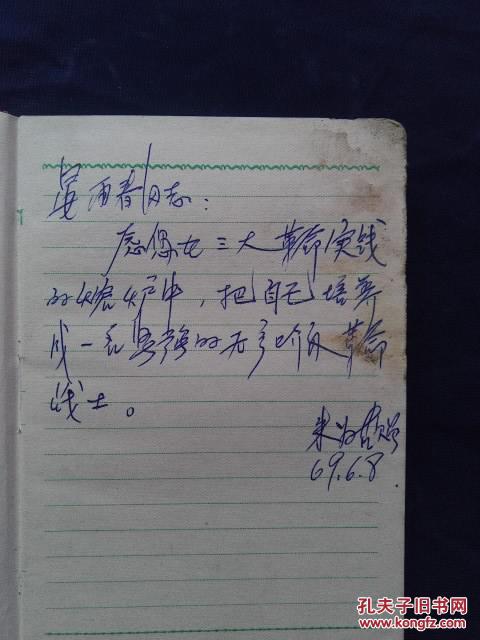 雨春同志:
愿您在三大革命实践
的熔炉中,把自己培养
成一名坚强的无产阶级革命
战士。
朱
69.6.8
孔夫子旧书网
www.kongfz.com